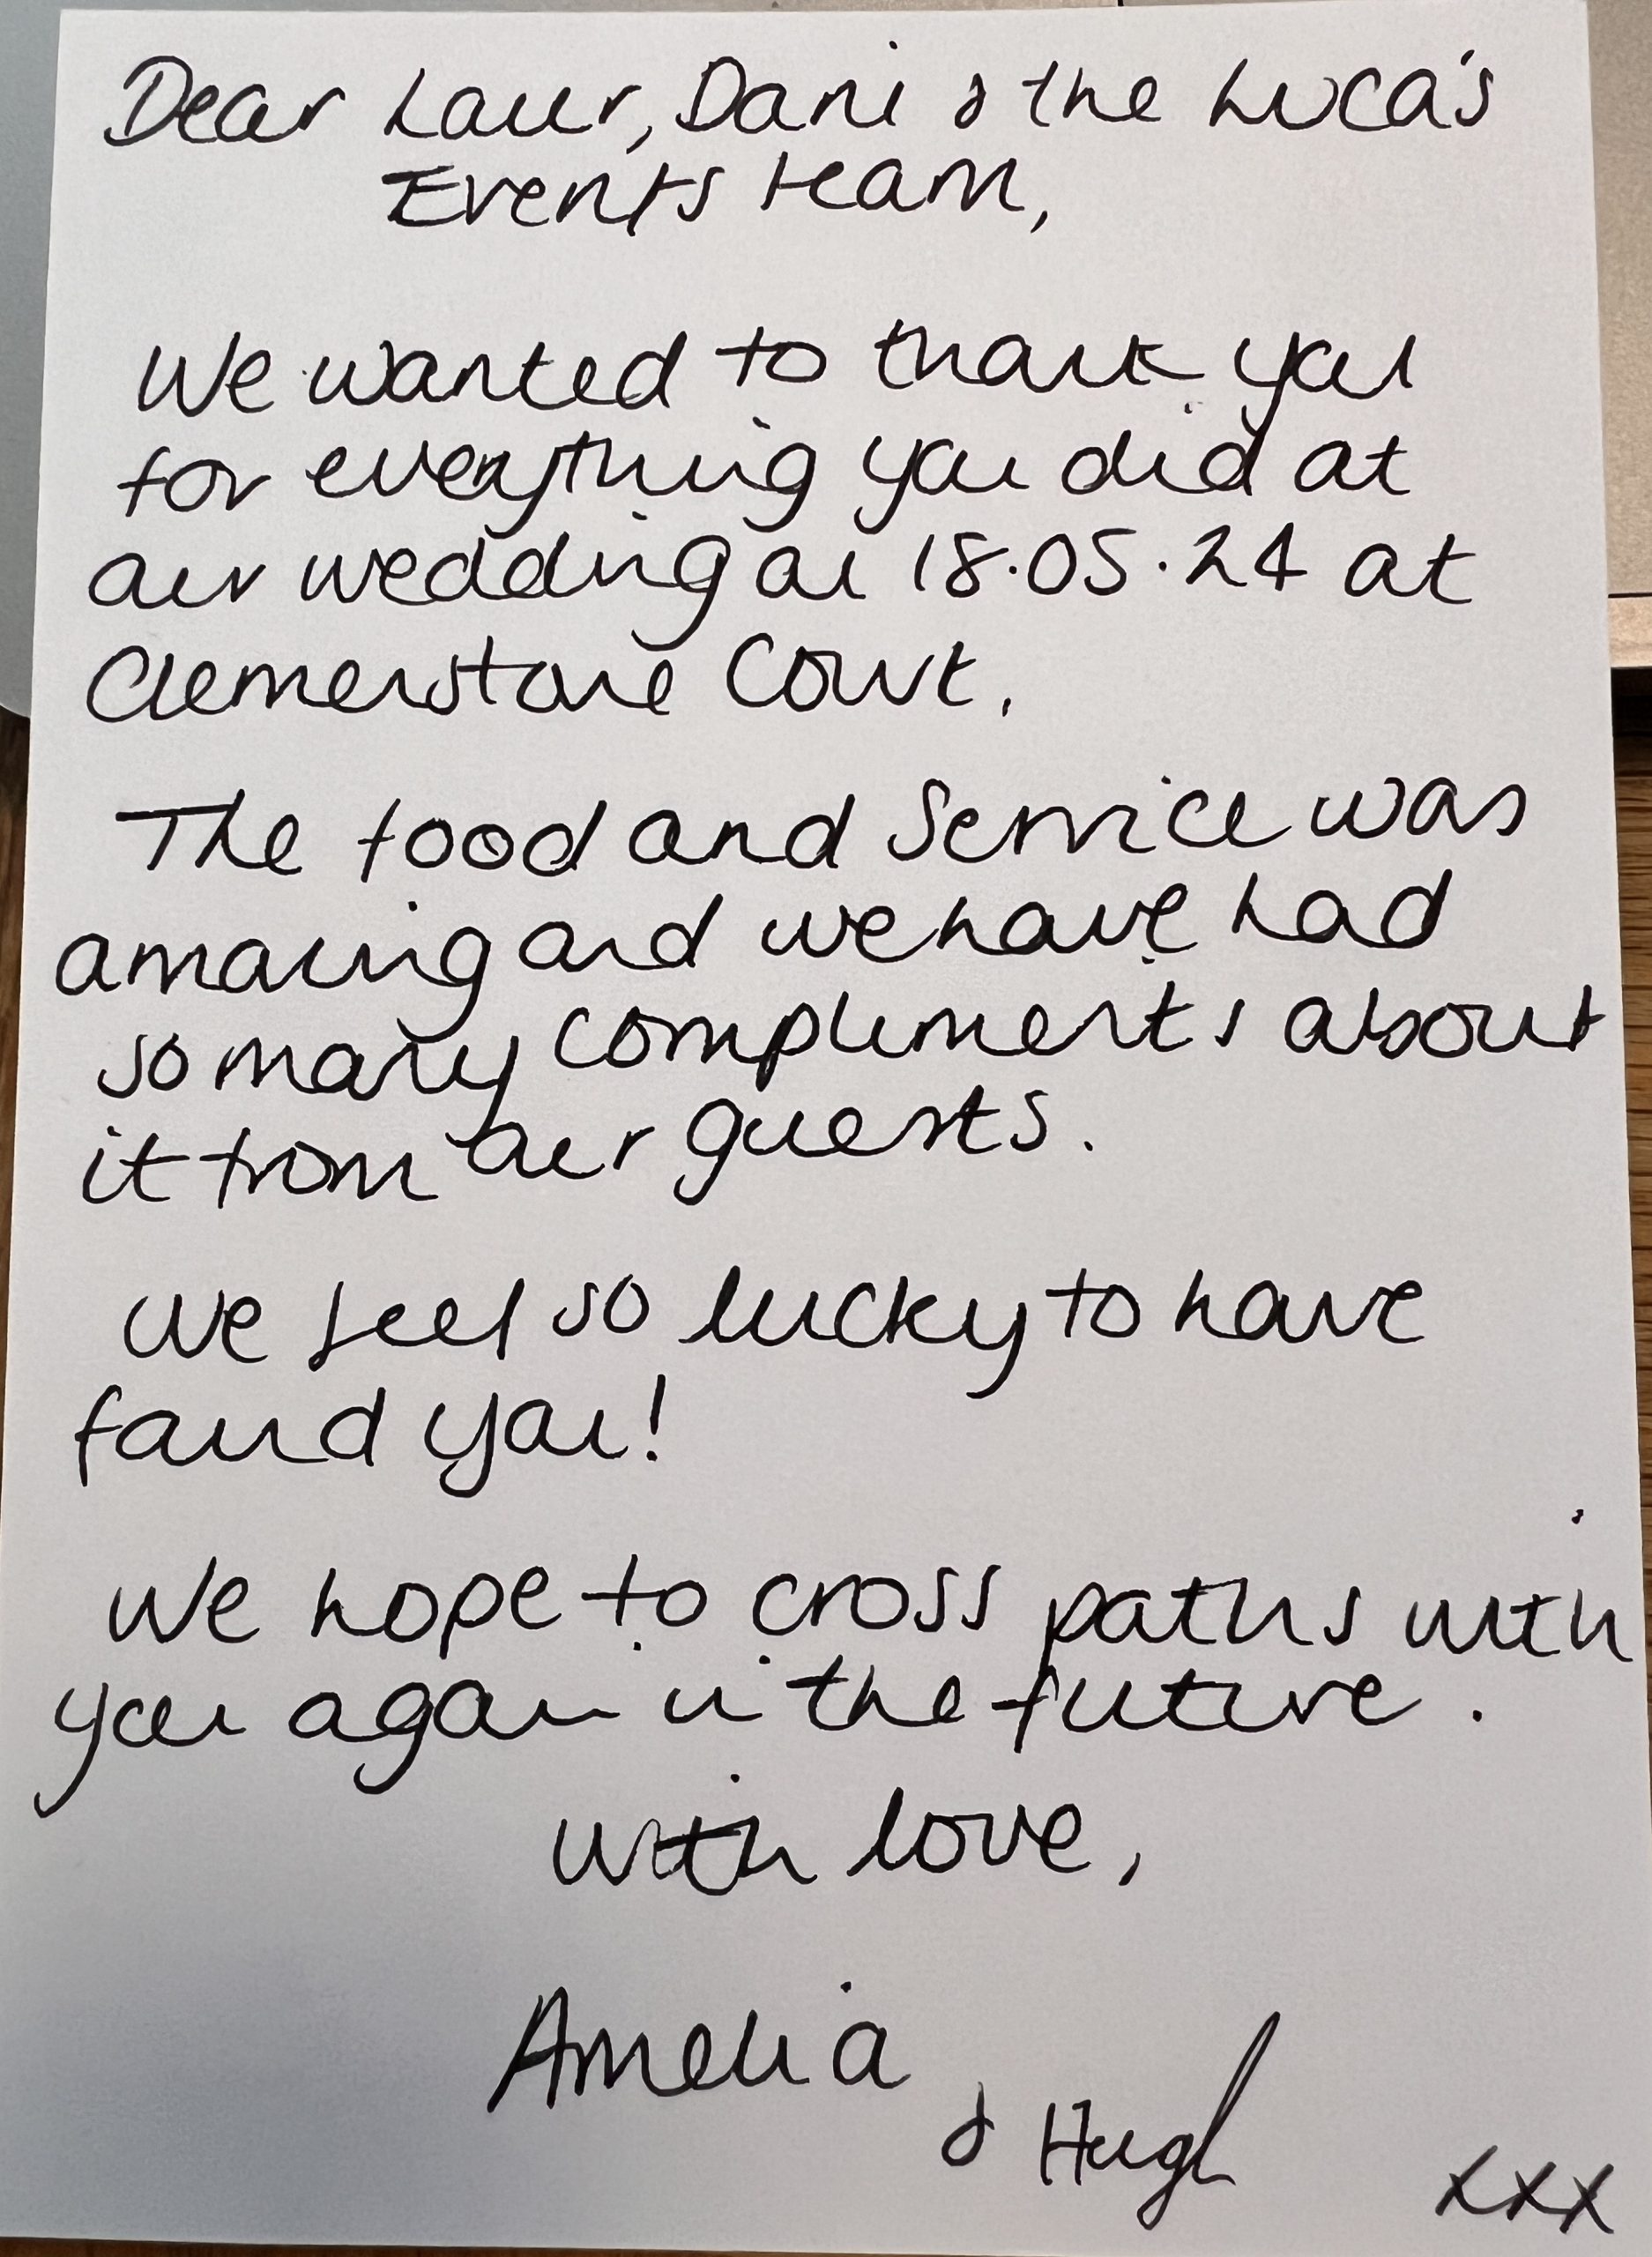 Dear Laur, Dani & the Luca's
Events team,
We wanted to thank you
for everything you did at
our wedding on 18.05.24 at
Clemenstone Court.
The food and service was
amazing and we have had
so many compliments about
it from our guests.
We feel so lucky to have
found you!
We hope to cross paths with
you again in the future.
With love,
Amelia
& Hugh
xxx